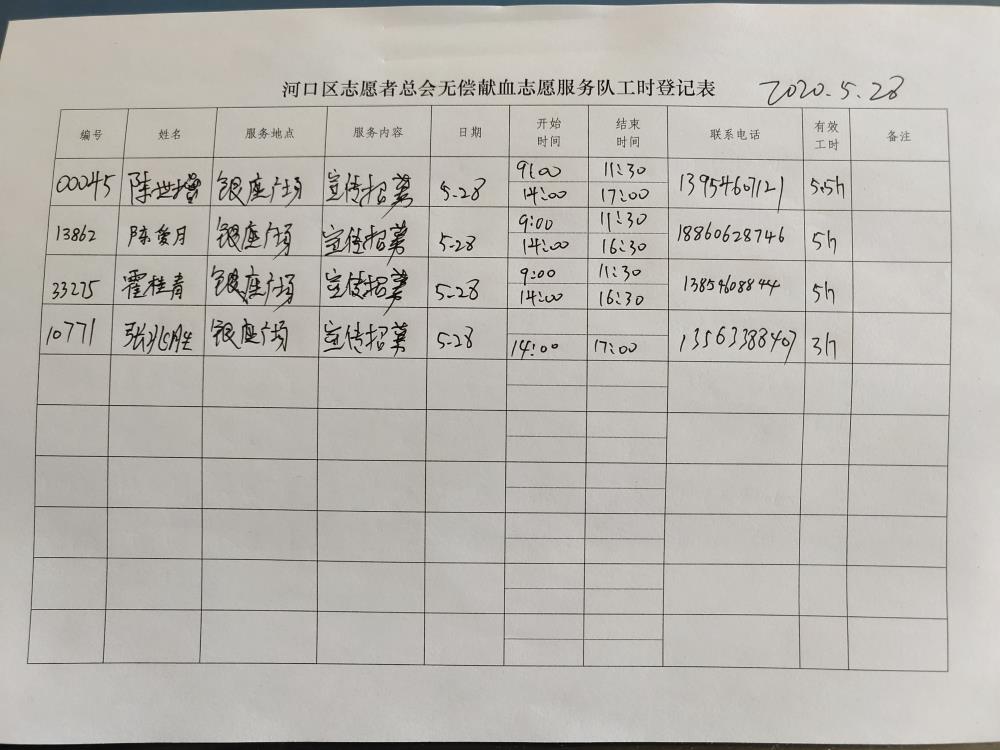 河口区志愿者总会无偿献血志愿服务队工时登记表 2020.5.28
编号 姓名 服务地点 服务内容 日期 开始时间 结束时间 联系电话 有效工时 备注
00045 陈世增 银座广场 宣传招募 5-28 9:00 11:30 13954607121 5.5h
14:00 17:00
13862 陈爱月 银座广场 宣传招募 5-28 9:00 11:30 18860628746 5h
14:00 16:30
33275 霍桂青 银座广场 宣传招募 5-28 9:00 11:30 13854608844 5h
14:00 16:30
10771 张兆胜 银座广场 宣传招募 5-28 14:00 17:00 13563388407 3h